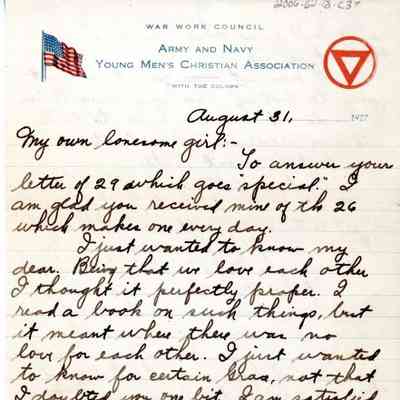 2006-62-B-C37
WAR WORK COUNCIL
ARMY AND NAVY
YOUNG MEN'S CHRISTIAN ASSOCIATION
"WITH THE COLORS"
August 31, 1917
My own lonesome girl:-
To answer your
letter of 29 which goes "special." I
am glad you received mine of th 26
which makes one every day.
I just wanted to know my
dear. Being that we love each other
I thought it perfectly proper. I
read a book on such things, but
it meant where there was no
love for each other. I just wanted
to know for certain Grace, not that
I doubted you one bit. I am satisfied